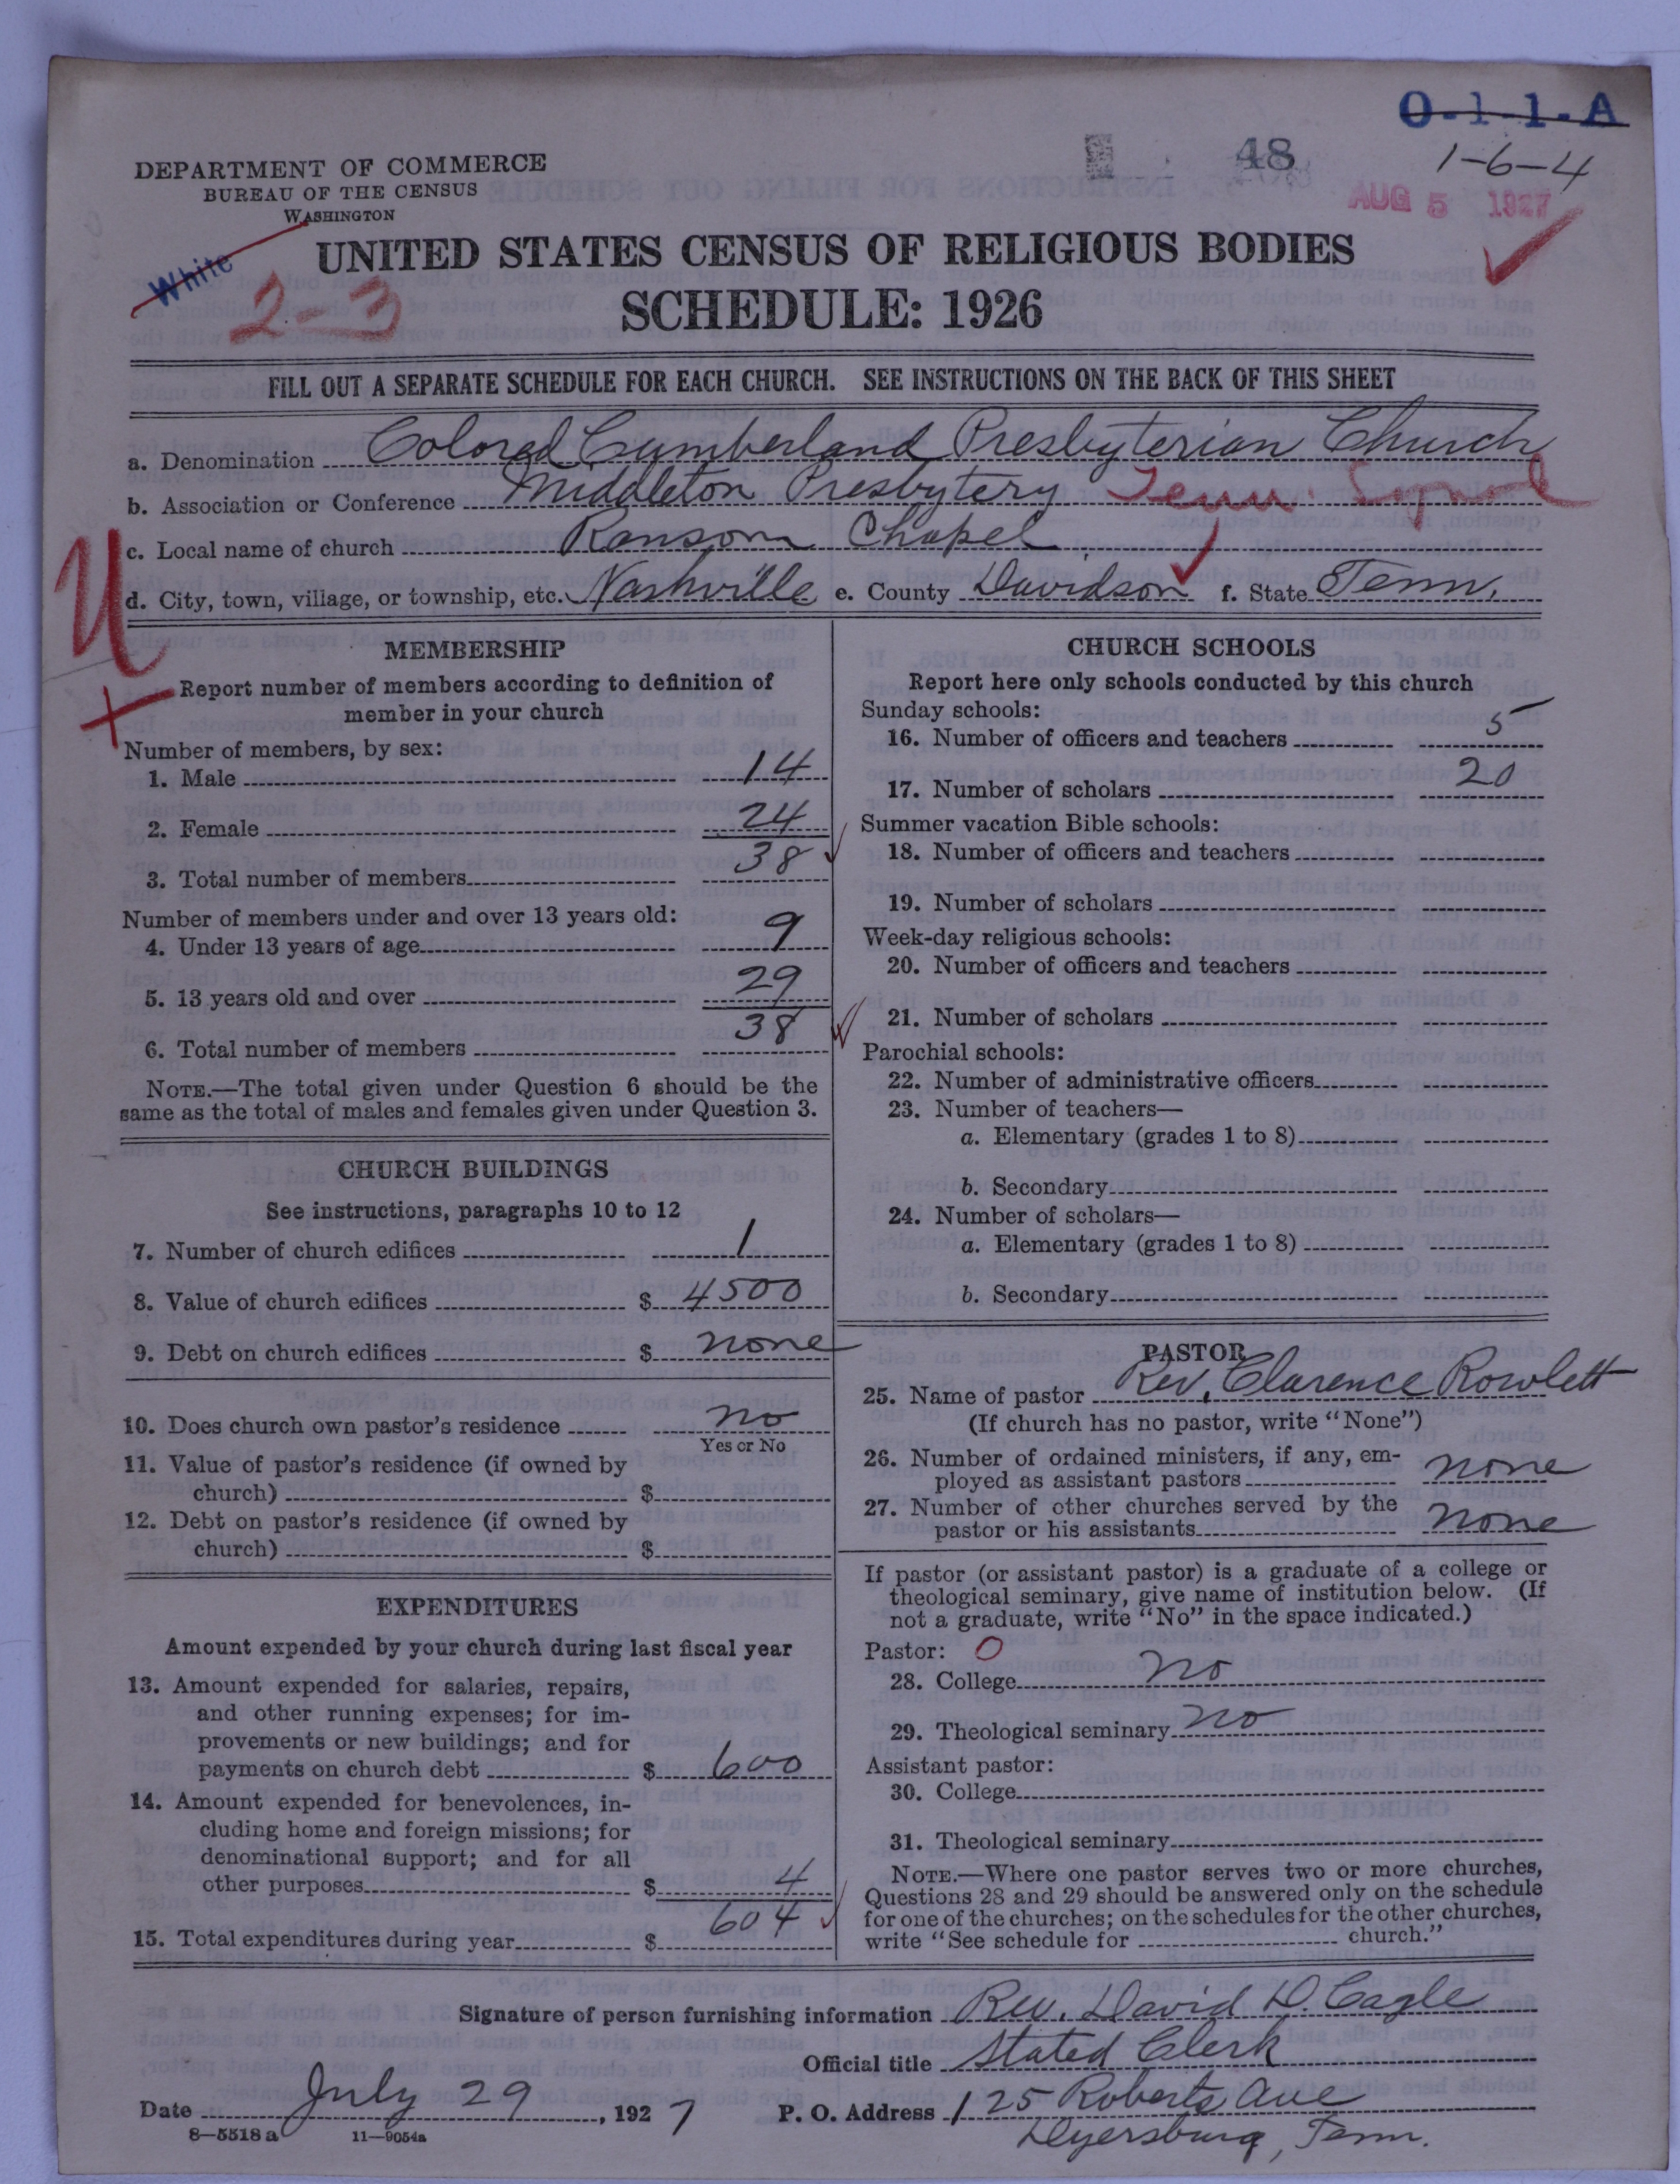 O-1-1-A
DEPARTMENT OF COMMERCE
BUREAU OF THE CENSUS
WASHINGTON
48
1-6-4
AUG 5 1927
White
2-3
UNITED STATES CENSUS OF RELIGIOUS BODIES
SCHEDULE: 1926
FILL OUT A SEPARATE SCHEDULE FOR EACH CHURCH. SEE INSTRUCTIONS ON THE BACK OF THIS SHEET
a. Denomination Colored Cumberland Presbyterian Church
b. Association or Conference Middleton Presbytery Tenn. Synod
c. Local name of church Ransom Chapel
d. City, town, village, or township, etc. Nashville e. County Davidson f. State Tenn.
U
MEMBERSHIP
Report number of members according to definition of
member in your church
Number of members, by sex:
1. Male 14
2. Female 24
3. Total number of members 38
Number of members under and over 13 years old:
4. Under 13 years of age 9
5. 13 years old and over 29
6. Total number of members 38
NOTE.—The total given under Question 6 should be the
same as the total of males and females given under Question 3.
CHURCH BUILDINGS
See instructions, paragraphs 10 to 12
7. Number of church edifices 1
8. Value of church edifices $ 4500
9. Debt on church edifices $ none
10. Does church own pastor's residence no
Yes or No
11. Value of pastor's residence (if owned by
church) $
12. Debt on pastor's residence (if owned by
church) $
EXPENDITURES
Amount expended by your church during last fiscal year
13. Amount expended for salaries, repairs,
and other running expenses; for im-
provements or new buildings; and for
payments on church debt $ 600
14. Amount expended for benevolences, in-
cluding home and foreign missions; for
denominational support; and for all
other purposes $ 4
15. Total expenditures during year $ 604
CHURCH SCHOOLS
Report here only schools conducted by this church
Sunday schools:
16. Number of officers and teachers 5
17. Number of scholars 20
Summer vacation Bible schools:
18. Number of officers and teachers
19. Number of scholars
Week-day religious schools:
20. Number of officers and teachers
21. Number of scholars
Parochial schools:
22. Number of administrative officers
23. Number of teachers—
a. Elementary (grades 1 to 8)
b. Secondary
24. Number of scholars—
a. Elementary (grades 1 to 8)
b. Secondary
PASTOR
25. Name of pastor Rev. Clarence Rowlett
(If church has no pastor, write "None")
26. Number of ordained ministers, if any, em-
ployed as assistant pastors none
27. Number of other churches served by the
pastor or his assistants none
If pastor (or assistant pastor) is a graduate of a college or
theological seminary, give name of institution below. (If
not a graduate, write "No" in the space indicated.)
Pastor: O
28. College no
29. Theological seminary no
Assistant pastor:
30. College
31. Theological seminary
NOTE.—Where one pastor serves two or more churches,
Questions 28 and 29 should be answered only on the schedule
for one of the churches; on the schedules for the other churches,
write "See schedule for church."
Signature of person furnishing information Rev. David D. Cagle
Official title Stated Clerk
Date July 29, 1927 P. O. Address 125 Roberts Ave
Dyersburg, Tenn.
8—5518 a 11—9054a